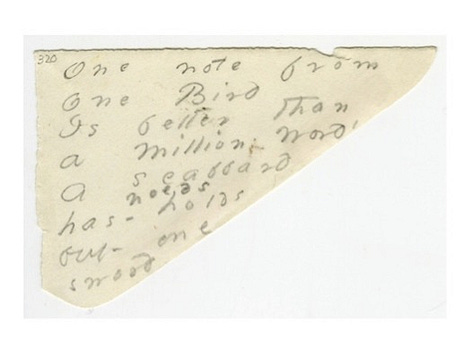 320
One note from
One Bird
Is better than
a million words
A scabbard
needs
has - holds
but - one
sword